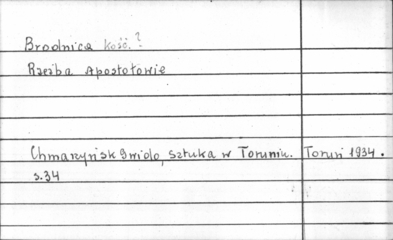 Brodnica kość.?
Rzeźba Apostołowie
Chmarzyńsk Gwido, sztuka w Toruniu. Toruń 1934.
s.34